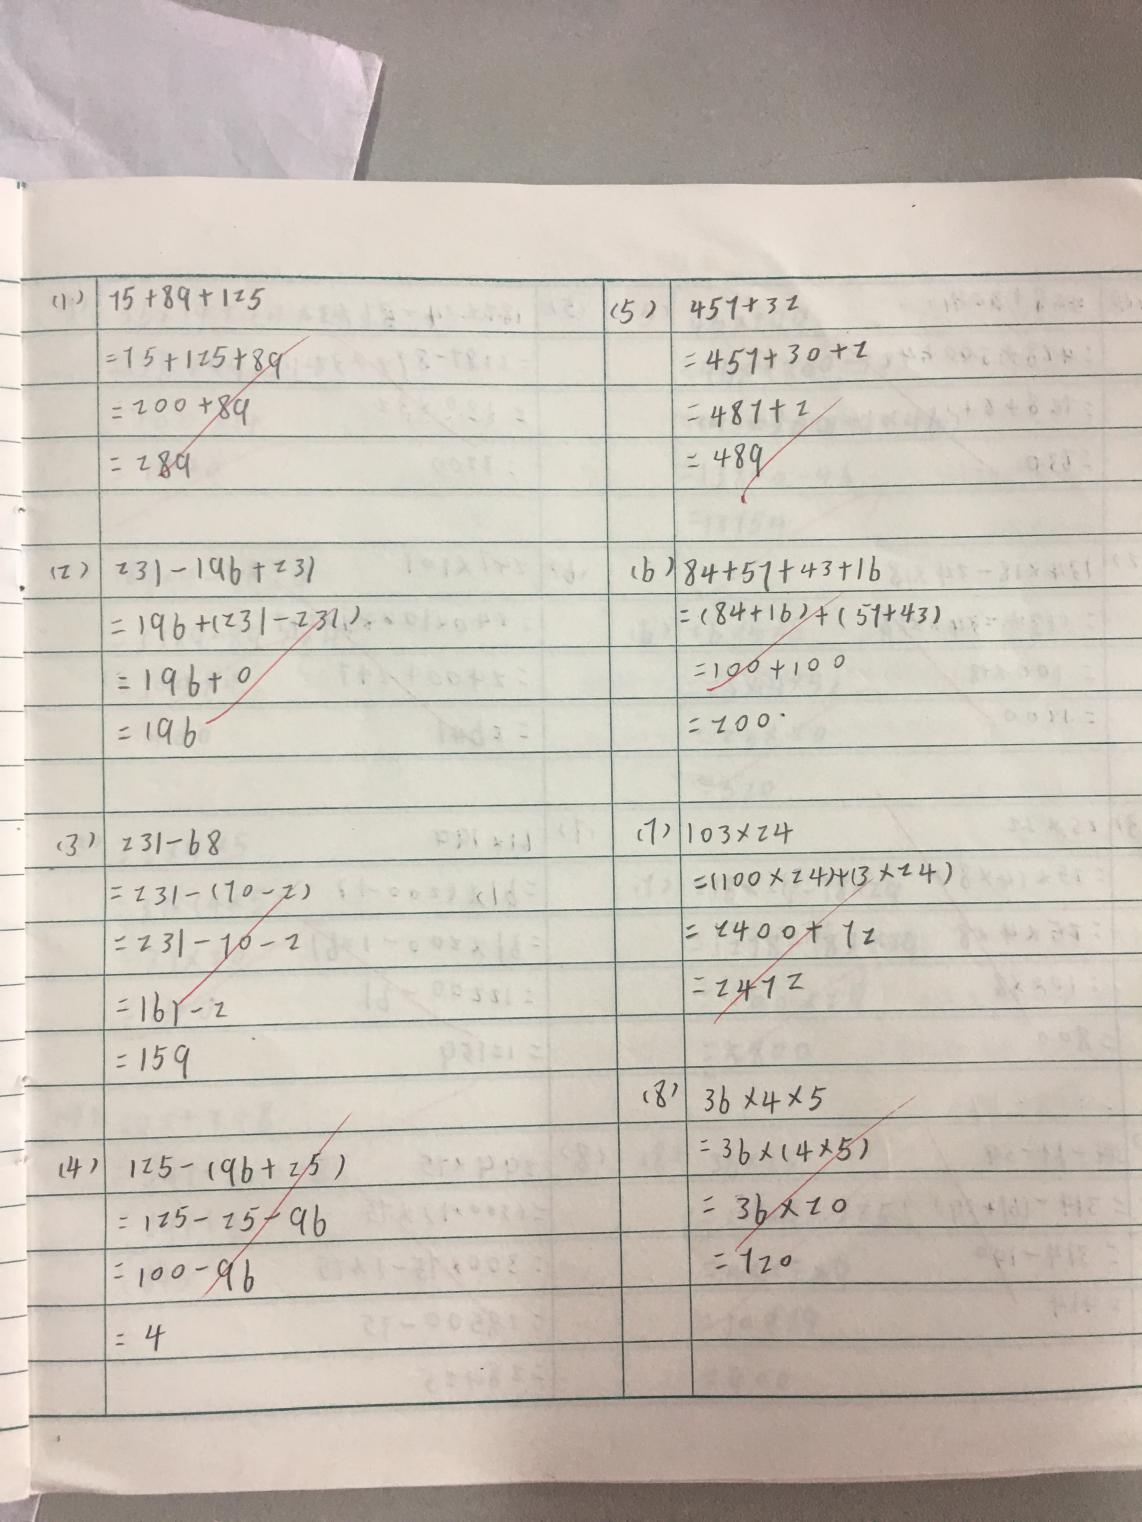 (1) 75+89+125
=75+125+89
=200+89
=289
(2) 231-196+231
=196+(231-231)
=196+0
=196
(3) 231-68
=231-(70-2)
=231-70-2
=161-2
=159
(4) 125-(96+25)
=125-25-96
=100-96
=4
(5) 457+32
=457+30+2
=487+2
=489
(6) 84+57+43+16
=(84+16)+(57+43)
=100+100
=200
(7) 103×24
=(100×24)+(3×24)
=2400+72
=2472
(8) 36×4×5
=36×(4×5)
=36×20
=720